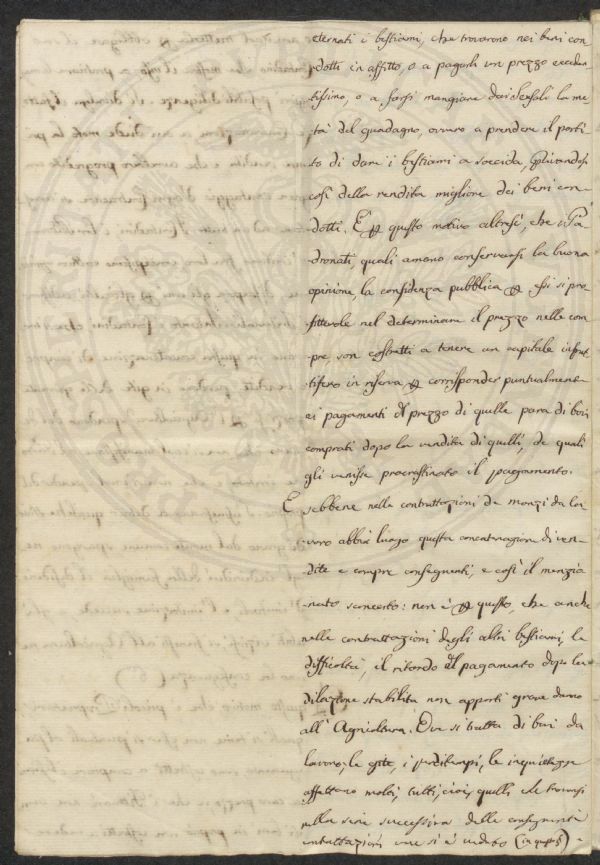 eternati i bestiami, che trovarono nei beni con
dotti in affitto, o a pagarli un prezzo eccedentissimo,
o a farsi mangiare dai Sensali la me
tà del guadagno, ovvero a prendere il parti
to di dare i bestiami a soccida, privandosi
così della rendita migliore dei beni con
dotti. È questo motivo altresì, che i Pa
dronati, quali amano conservarsi la buona
opinione, la confidenza pubblica essi si pro
fittevole nel determinare il prezzo nelle com
pre, son costretti a tenere un capitale infrut
tifero in riserva, corrisponder puntualmente
ai pagamenti di prezzo di quelle para di bovi
comprati dopo la vendita di quelli, de quali
gli venisse procrastinato il pagamento.
E sebbene nelle contrattazioni de manzi da la
voro abbia luogo questa concatenazione di ven
dite e compre conseguenti, e così il menzio
nato sconcerto: non è questo, che anche
nelle contrattazioni degli altri bestiami, la
difficoltà, il ritardo del pagamento dopo la
dilazione stabilita non apporti grave danno
all' Agricoltura. Ove si tratta di bovi da
lavoro, le gite, i perditempi, le inquietezze
affettano molti, tutti, cioè, quelli che trovansi
nella serie successiva delle conseguenti
contrattazioni come si è veduto